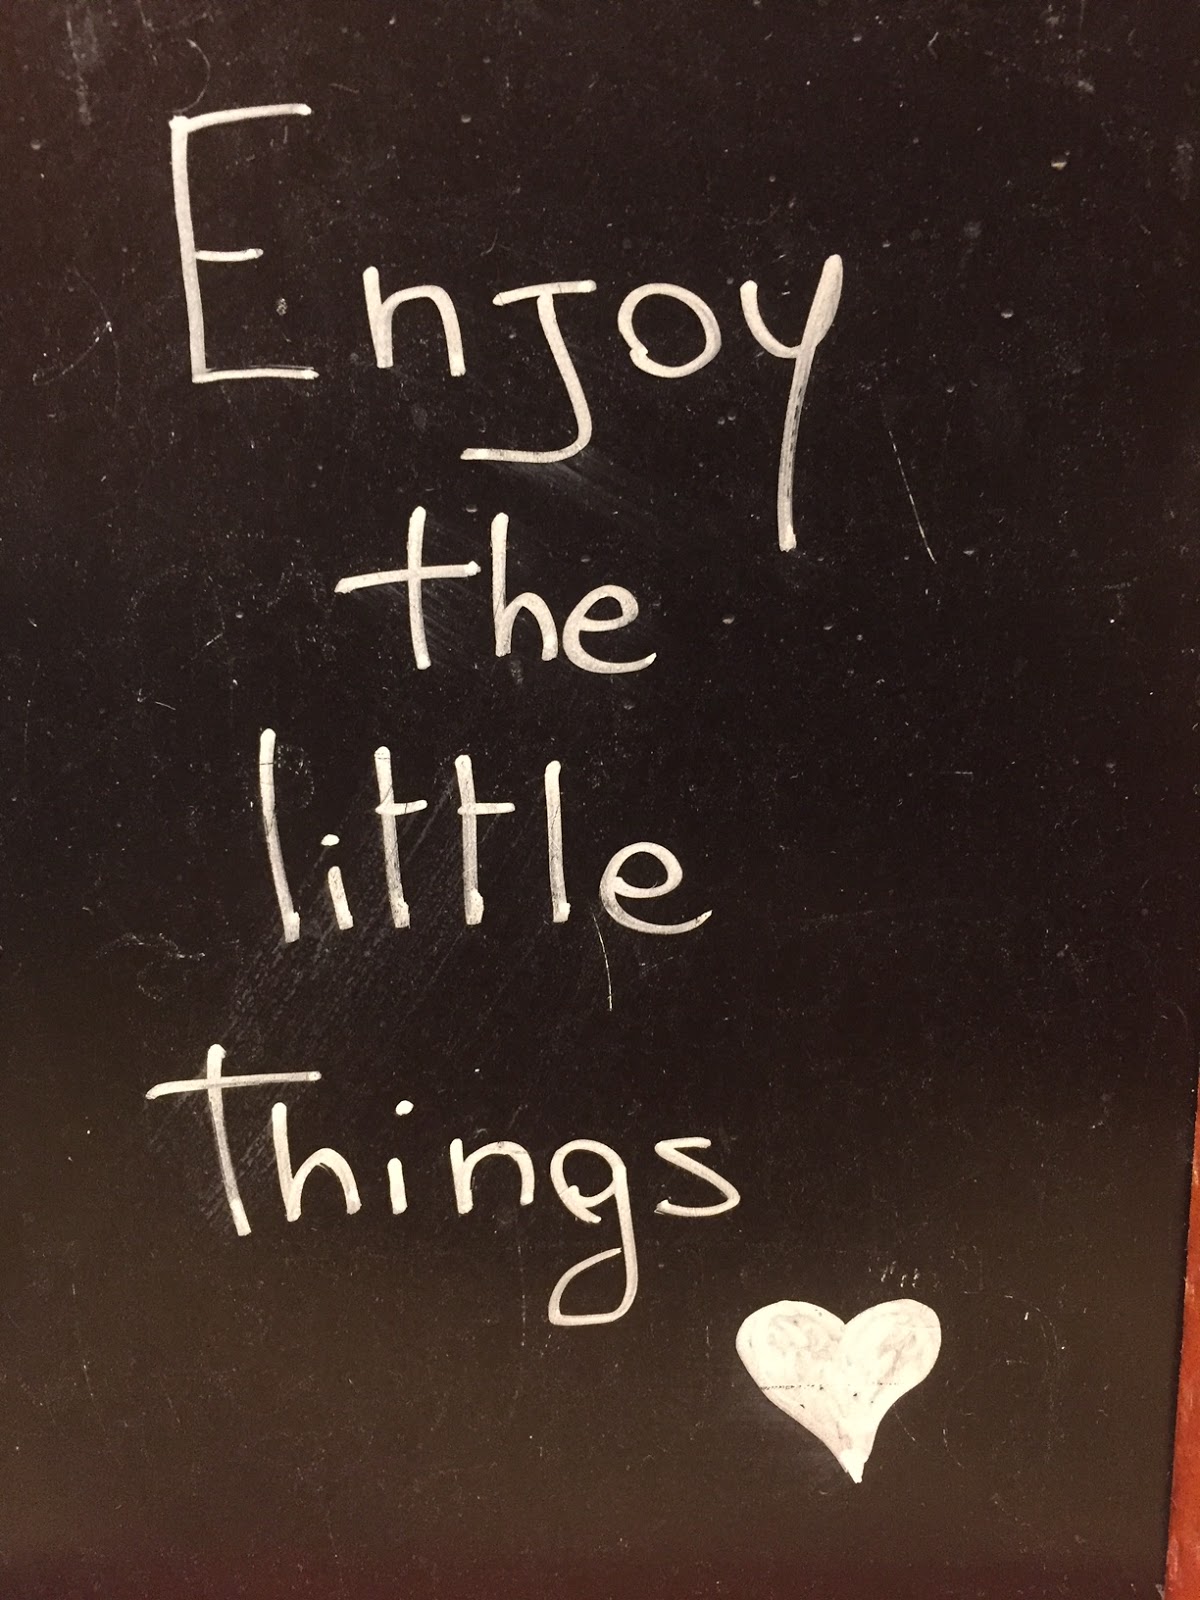 Enjoy
the
little
things